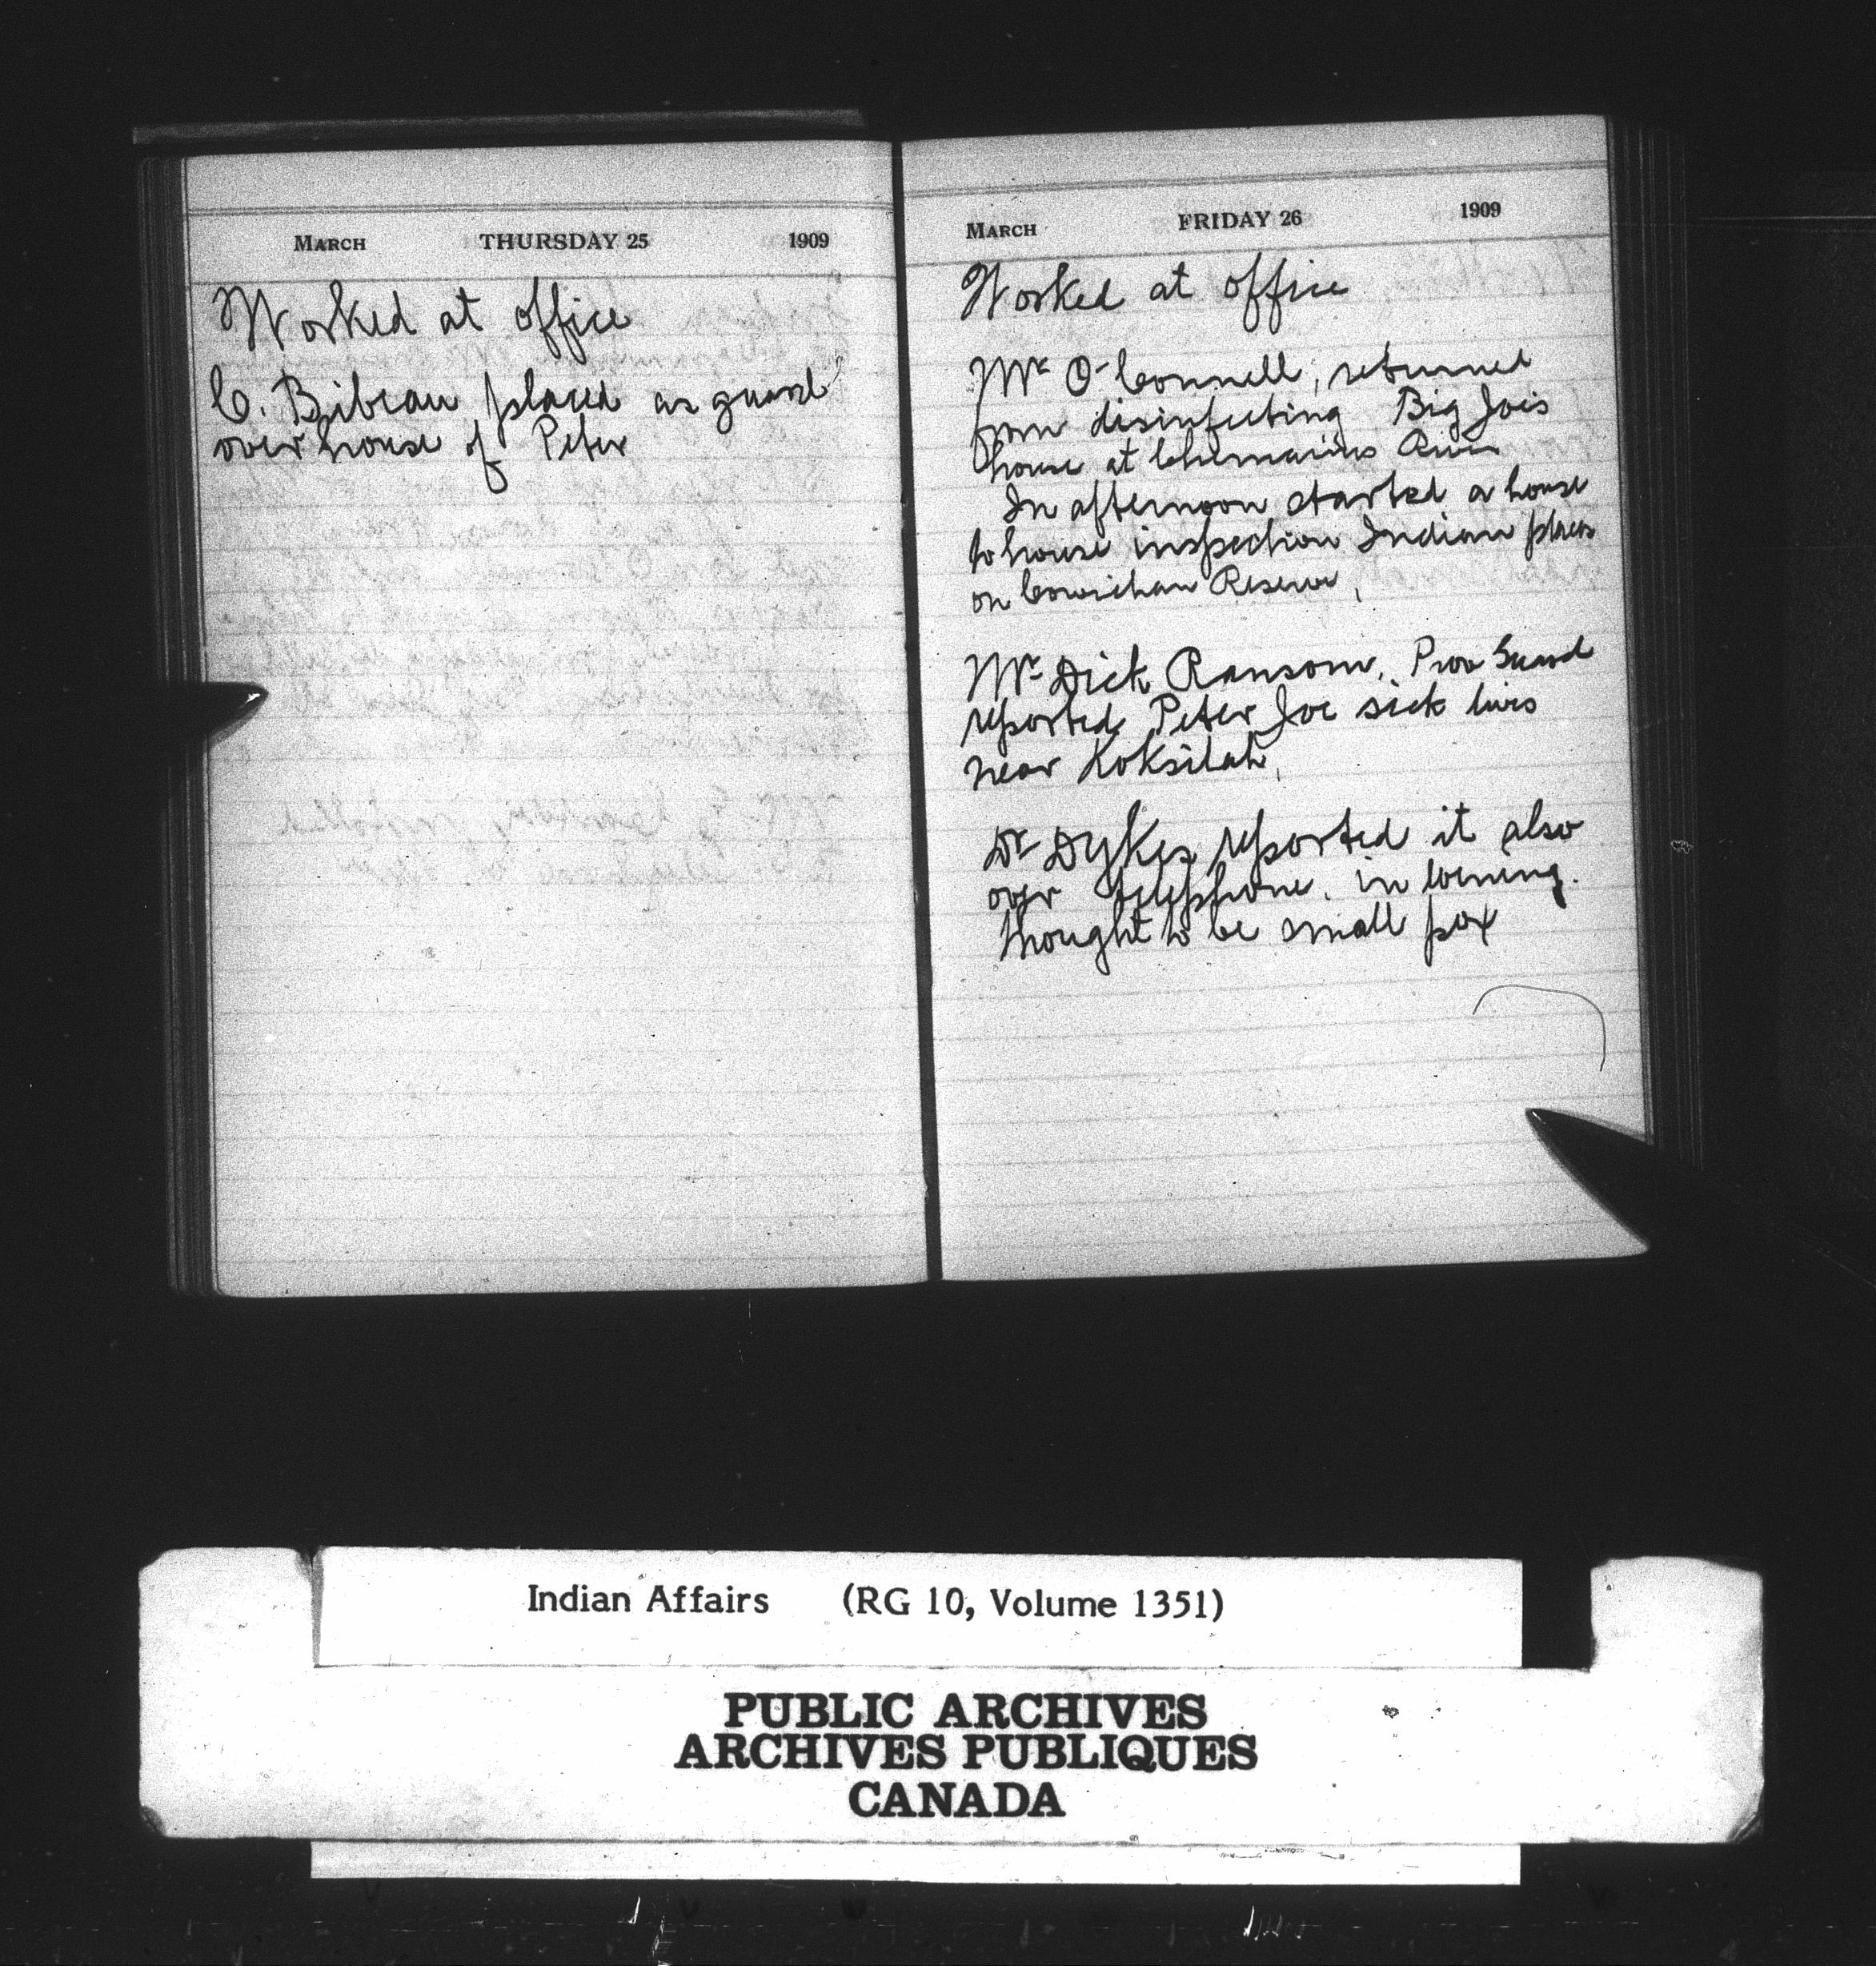 MARCH THURSDAY 25 1909
Worked at office
C. Bibeau placed as guard
over house of Peter
MARCH FRIDAY 26 1909
Worked at office
Mr O'Connell, returned
from disinfecting Big Joe's
house at Chemainus River
In afternoon started a house
to house inspection Indian places
on Cowichan Reserve,
Mr Dick Ransom, Prov Guard
reported Peter Joe sick lives
near Koksilah,
Dr Dykes reported it also
over telephone. in evening.
thought to be small pox
Indian Affairs (RG 10, Volume 1351)
PUBLIC ARCHIVES
ARCHIVES PUBLIQUES
CANADA